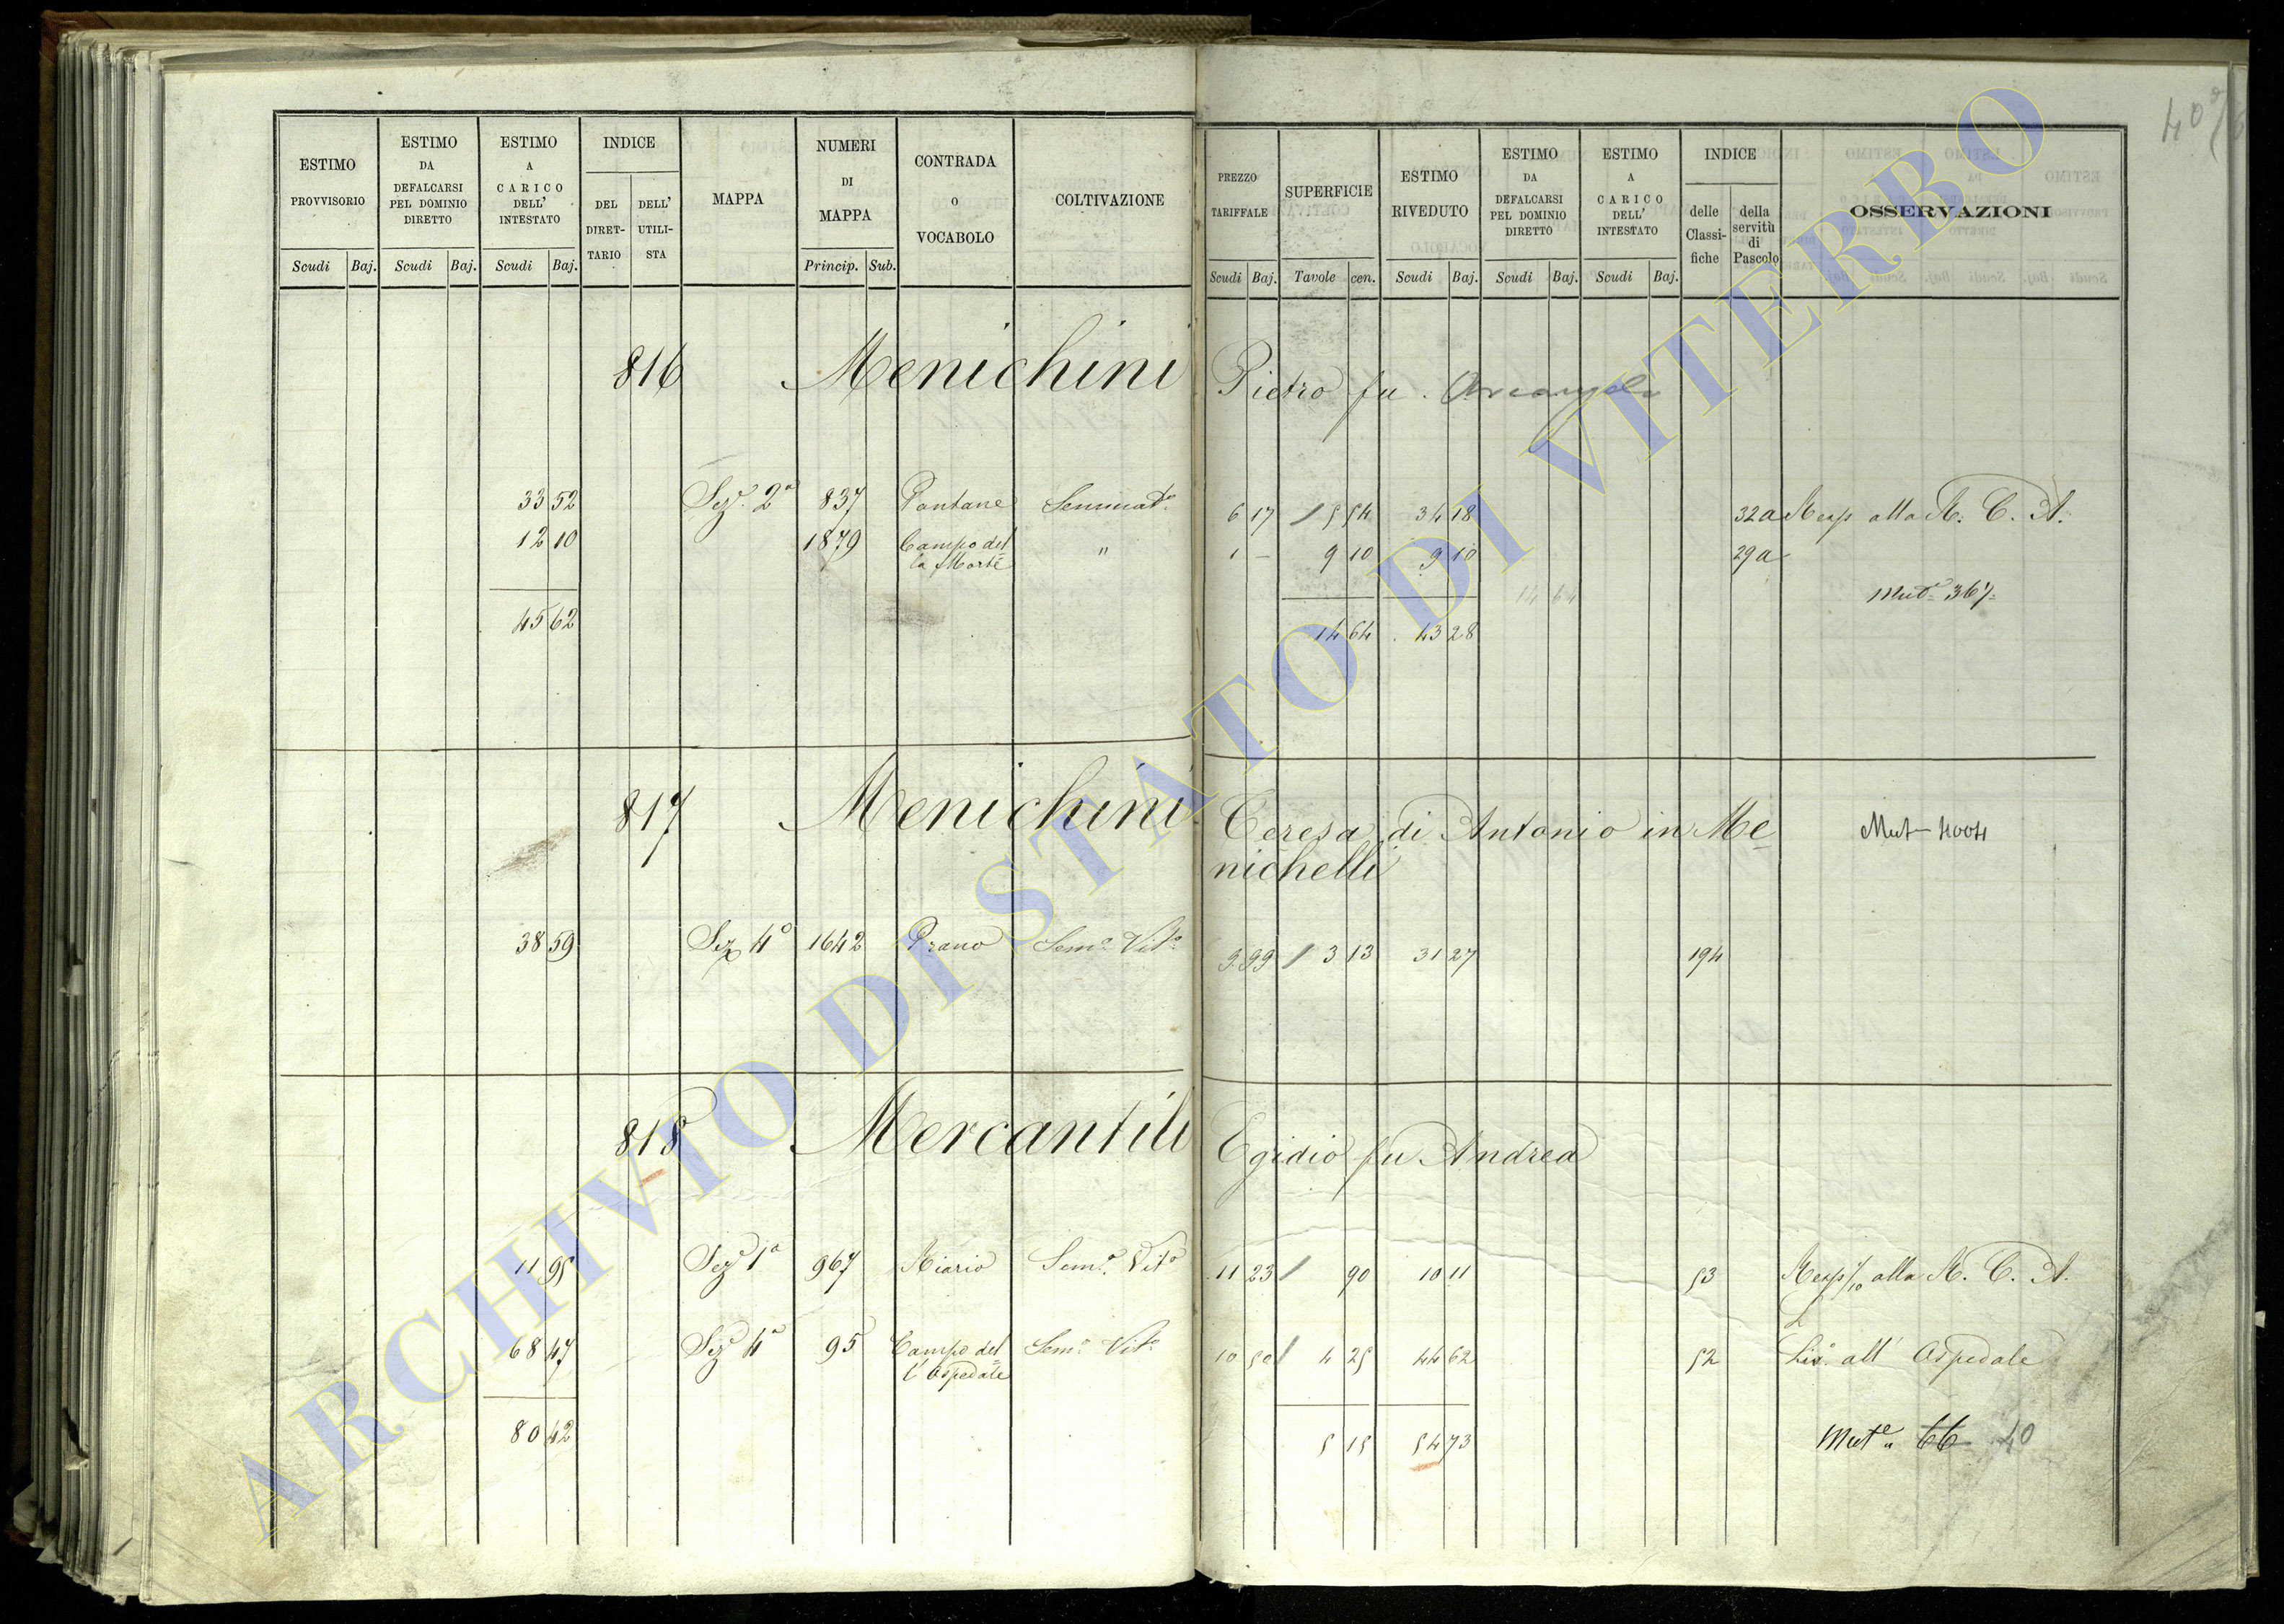 40
ESTIMO PROVVISORIO
ESTIMO DA DEFALCARSI PEL DOMINIO DIRETTO
ESTIMO A CARICO DELL' INTESTATO
INDICE
DEL DIRET-TARIO
DELL' UTILI-STA
MAPPA
NUMERI DI MAPPA
CONTRADA O VOCABOLO
COLTIVAZIONE
PREZZO TARIFFALE
SUPERFICIE
ESTIMO RIVEDUTO
ESTIMO DA DEFALCARSI PEL DOMINIO DIRETTO
ESTIMO A CARICO DELL' INTESTATO
INDICE
delle Classi-fiche
della servitù di Pascolo
OSSERVAZIONI
Scudi Baj. Scudi Baj. Scudi Baj. Princip. Sub. Scudi Baj. Tavole cen. Scudi Baj. Scudi Baj. Scudi Baj.
816 Menichini Pietro fu Arcangelo
33 52 Sez. 2a 837 Pantane Seminato 6 17 5 54 34 18 32a Resp alla R. C. A.
12 10 1879 Campo del la Morte " 1 — 9 10 9 10 29a
Mut. 367
45 62 14 64 43 28
817 Menichini Teresa di Antonio in Me
nichelli
Mut 4004
38 59 Sez 4a 1642 Prano Semo Vito 9 99 3 13 31 27 194
818 Mercantili Egidio fu Andrea
11 95 Sez 1a 967 Riario Semo Vito 11 23 90 10 11 53 Resp 1/10 alla R. C. A.
68 47 Sez 4a 95 Campo del l'Ospedale Semo Vito 10 50 4 25 44 62 52 Liv. all' Ospedale
80 42 5 15 54 73 Mute 66 40
ARCHIVIO DI STATO DI VITERBO